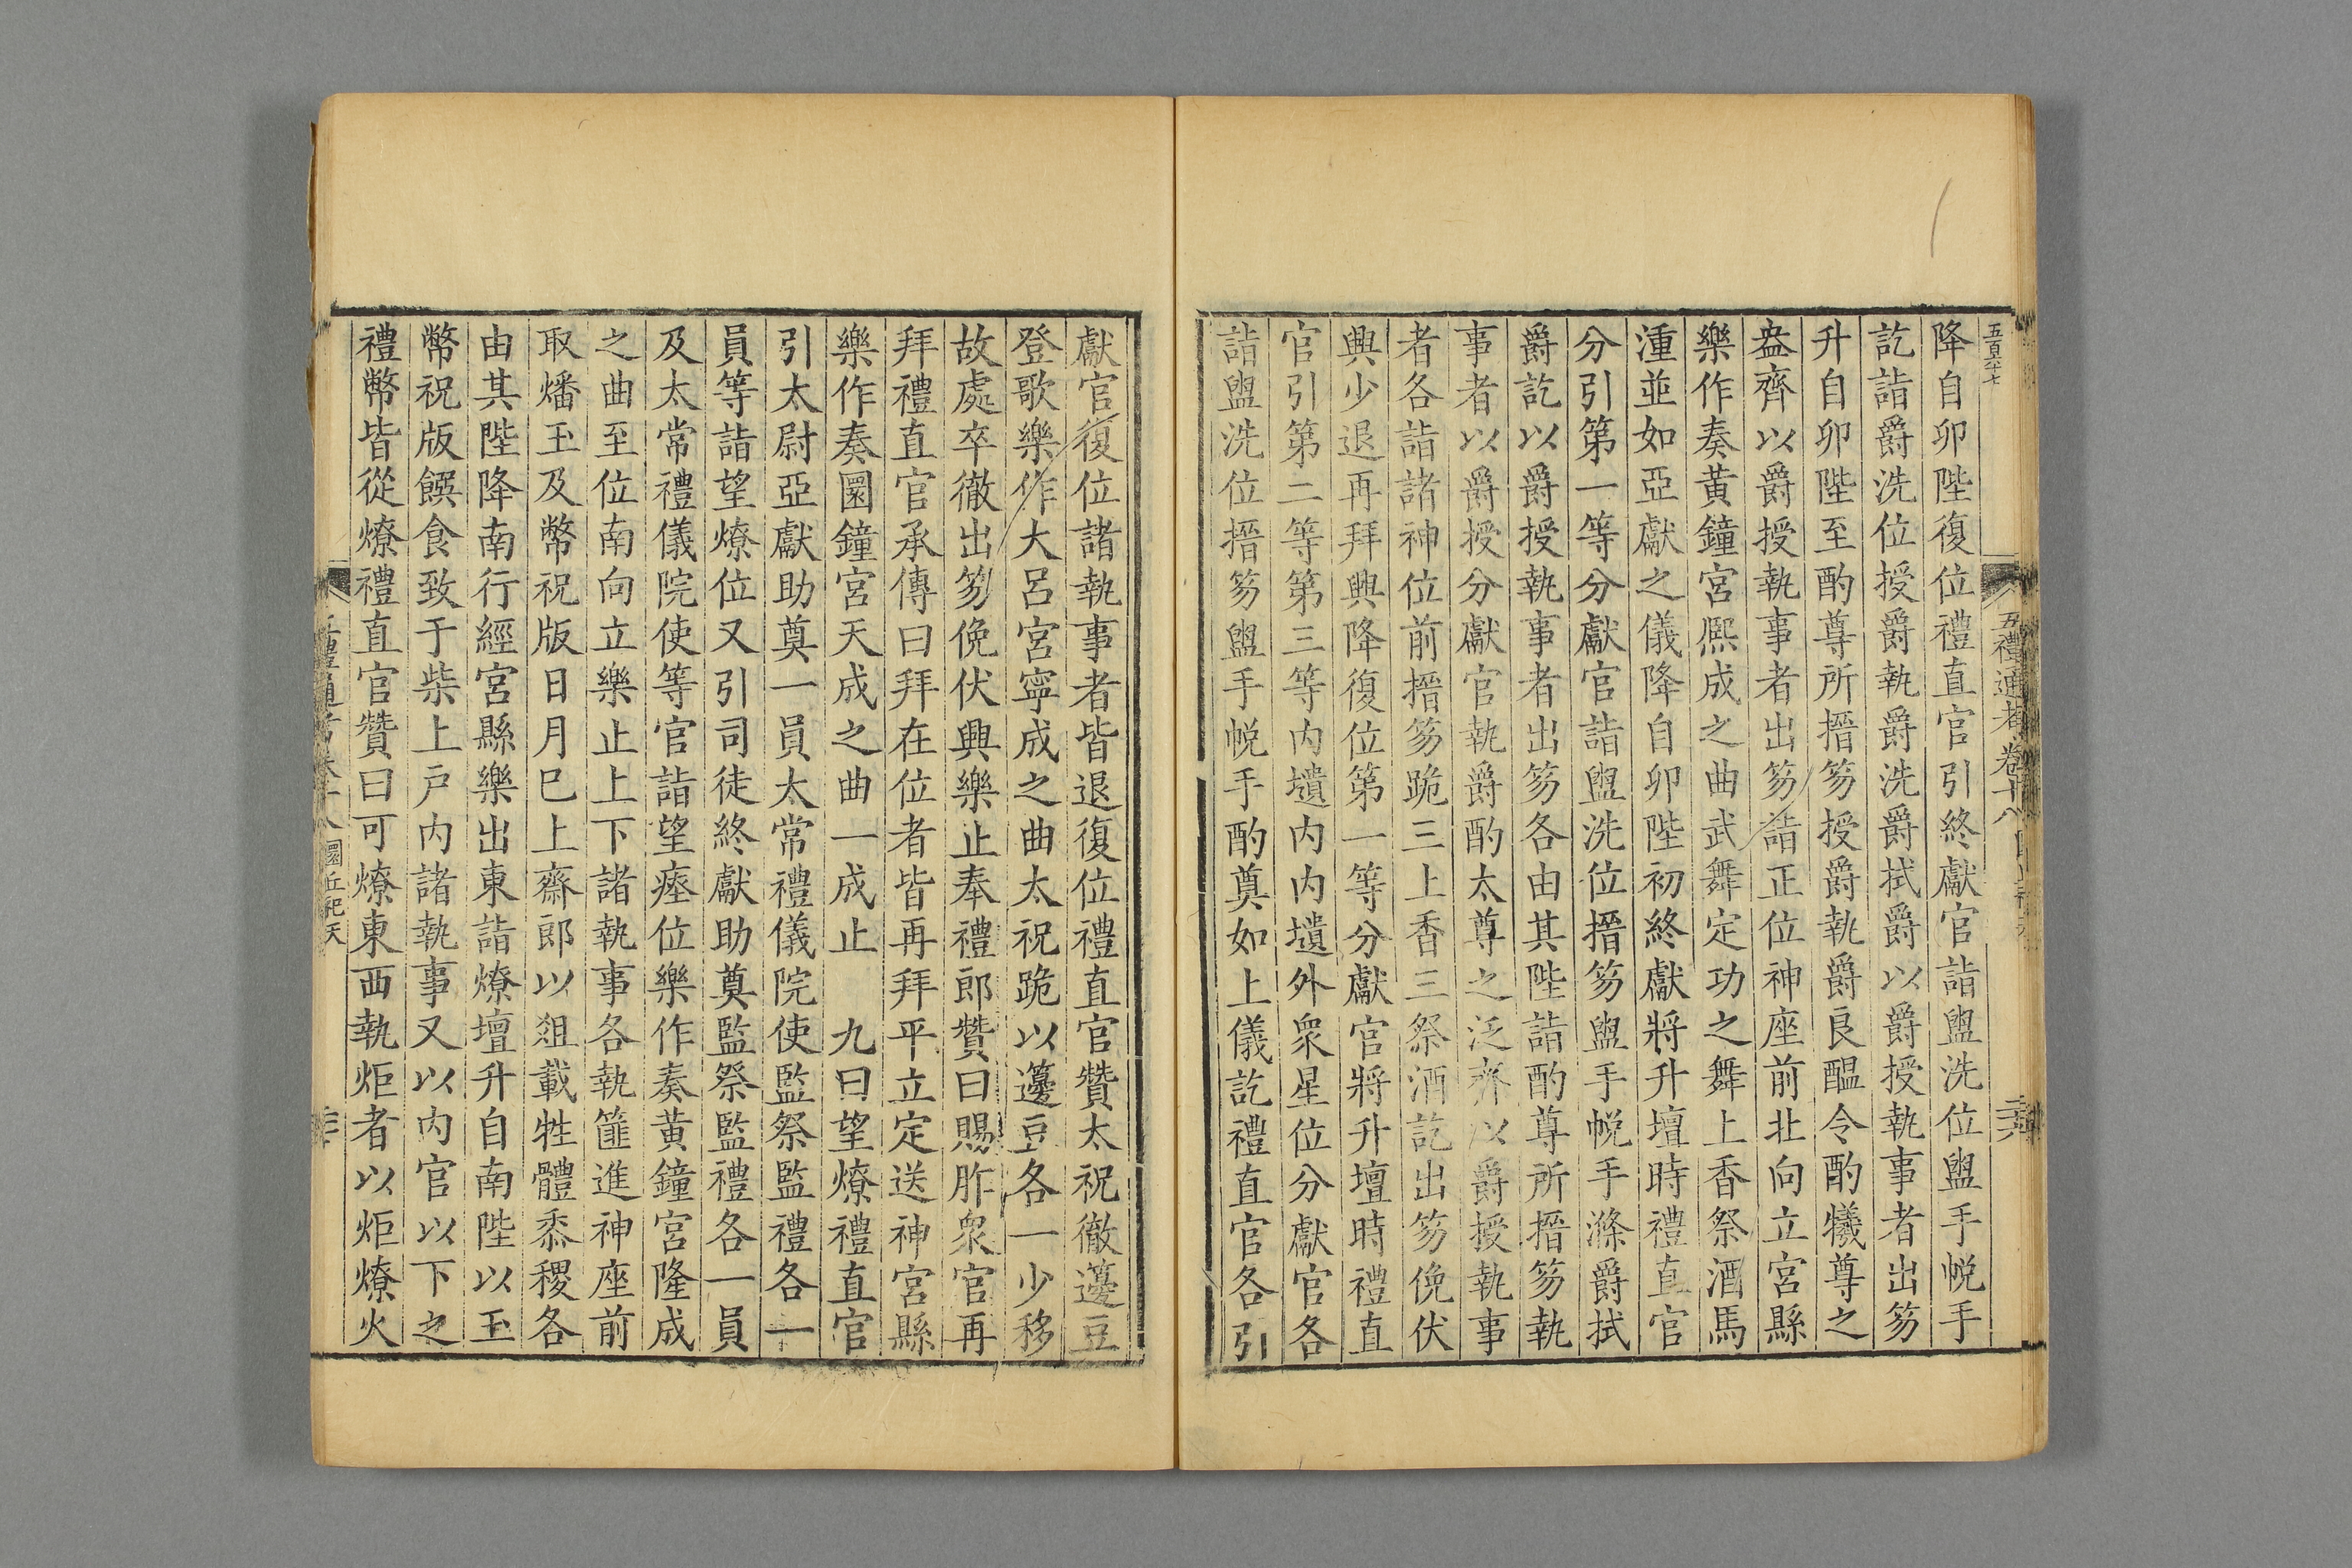 五百六十七
五禮通考卷十八
降自卯陛復位禮直官引終獻官詣盥洗位盥手帨手
訖詣爵洗位授爵執爵洗爵拭爵以爵授執事者出笏
升自卯陛至酌尊所搢笏授爵執爵良醖令酌犧尊之
盎齊以爵授執事者出笏詣正位神座前北向立宮縣
樂作奏黃鐘宮熙成之曲武舞定功之舞上香祭酒馬
湩並如亞獻之儀降自卯陛初終獻將升壇時禮直官
分引第一等分獻官詣盥洗位搢笏盥手帨手滌爵拭
爵訖以爵授執事者出笏各由其陛詣酌尊所搢笏執
事者以爵授分獻官執爵酌太尊之泛齊以爵授執事
者各詣諸神位前搢笏跪三上香三祭酒訖出笏俛伏
興少退再拜興降復位第一等分獻官將升壇時禮直
官引第二等第三等內壝內內壝外衆星位分獻官各
詣盥洗位搢笏盥手帨手酌奠如上儀訖禮直官各引
獻官復位諸執事者皆退復位禮直官贊太祝徹籩豆
登歌樂作大呂宮寧成之曲太祝跪以籩豆各一少移
故處卒徹出笏俛伏興樂止奉禮郎贊曰賜胙衆官再
拜禮直官承傳曰拜在位者皆再拜平立定送神宮縣
樂作奏圜鐘宮天成之曲一成止 九曰望燎禮直官
引太尉亞獻助奠一員太常禮儀院使監祭監禮各一
員等詣望燎位又引司徒終獻助奠監祭監禮各一員
及太常禮儀院使等官詣望瘞位樂作奏黃鐘宮隆成
之曲至位南向立樂止上下諸執事各執篚進神座前
取燔玉及幣祝版日月巳上齋郎以俎載牲體黍稷各
由其陛降南行經宮縣樂出東詣燎壇升自南陛以玉
幣祝版饌食致于柴上戶內諸執事又以內官以下之
禮幣皆從燎禮直官贊曰可燎東西執炬者以炬燎火
圜丘祀天